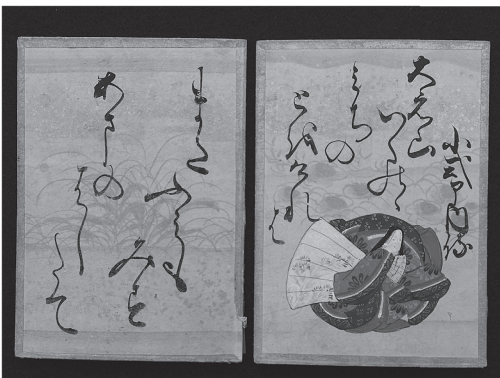 小式部内侍
大江山
いくのゝ
みちの
とをけれは
また
ふみも
みす
あまの
はし
たて